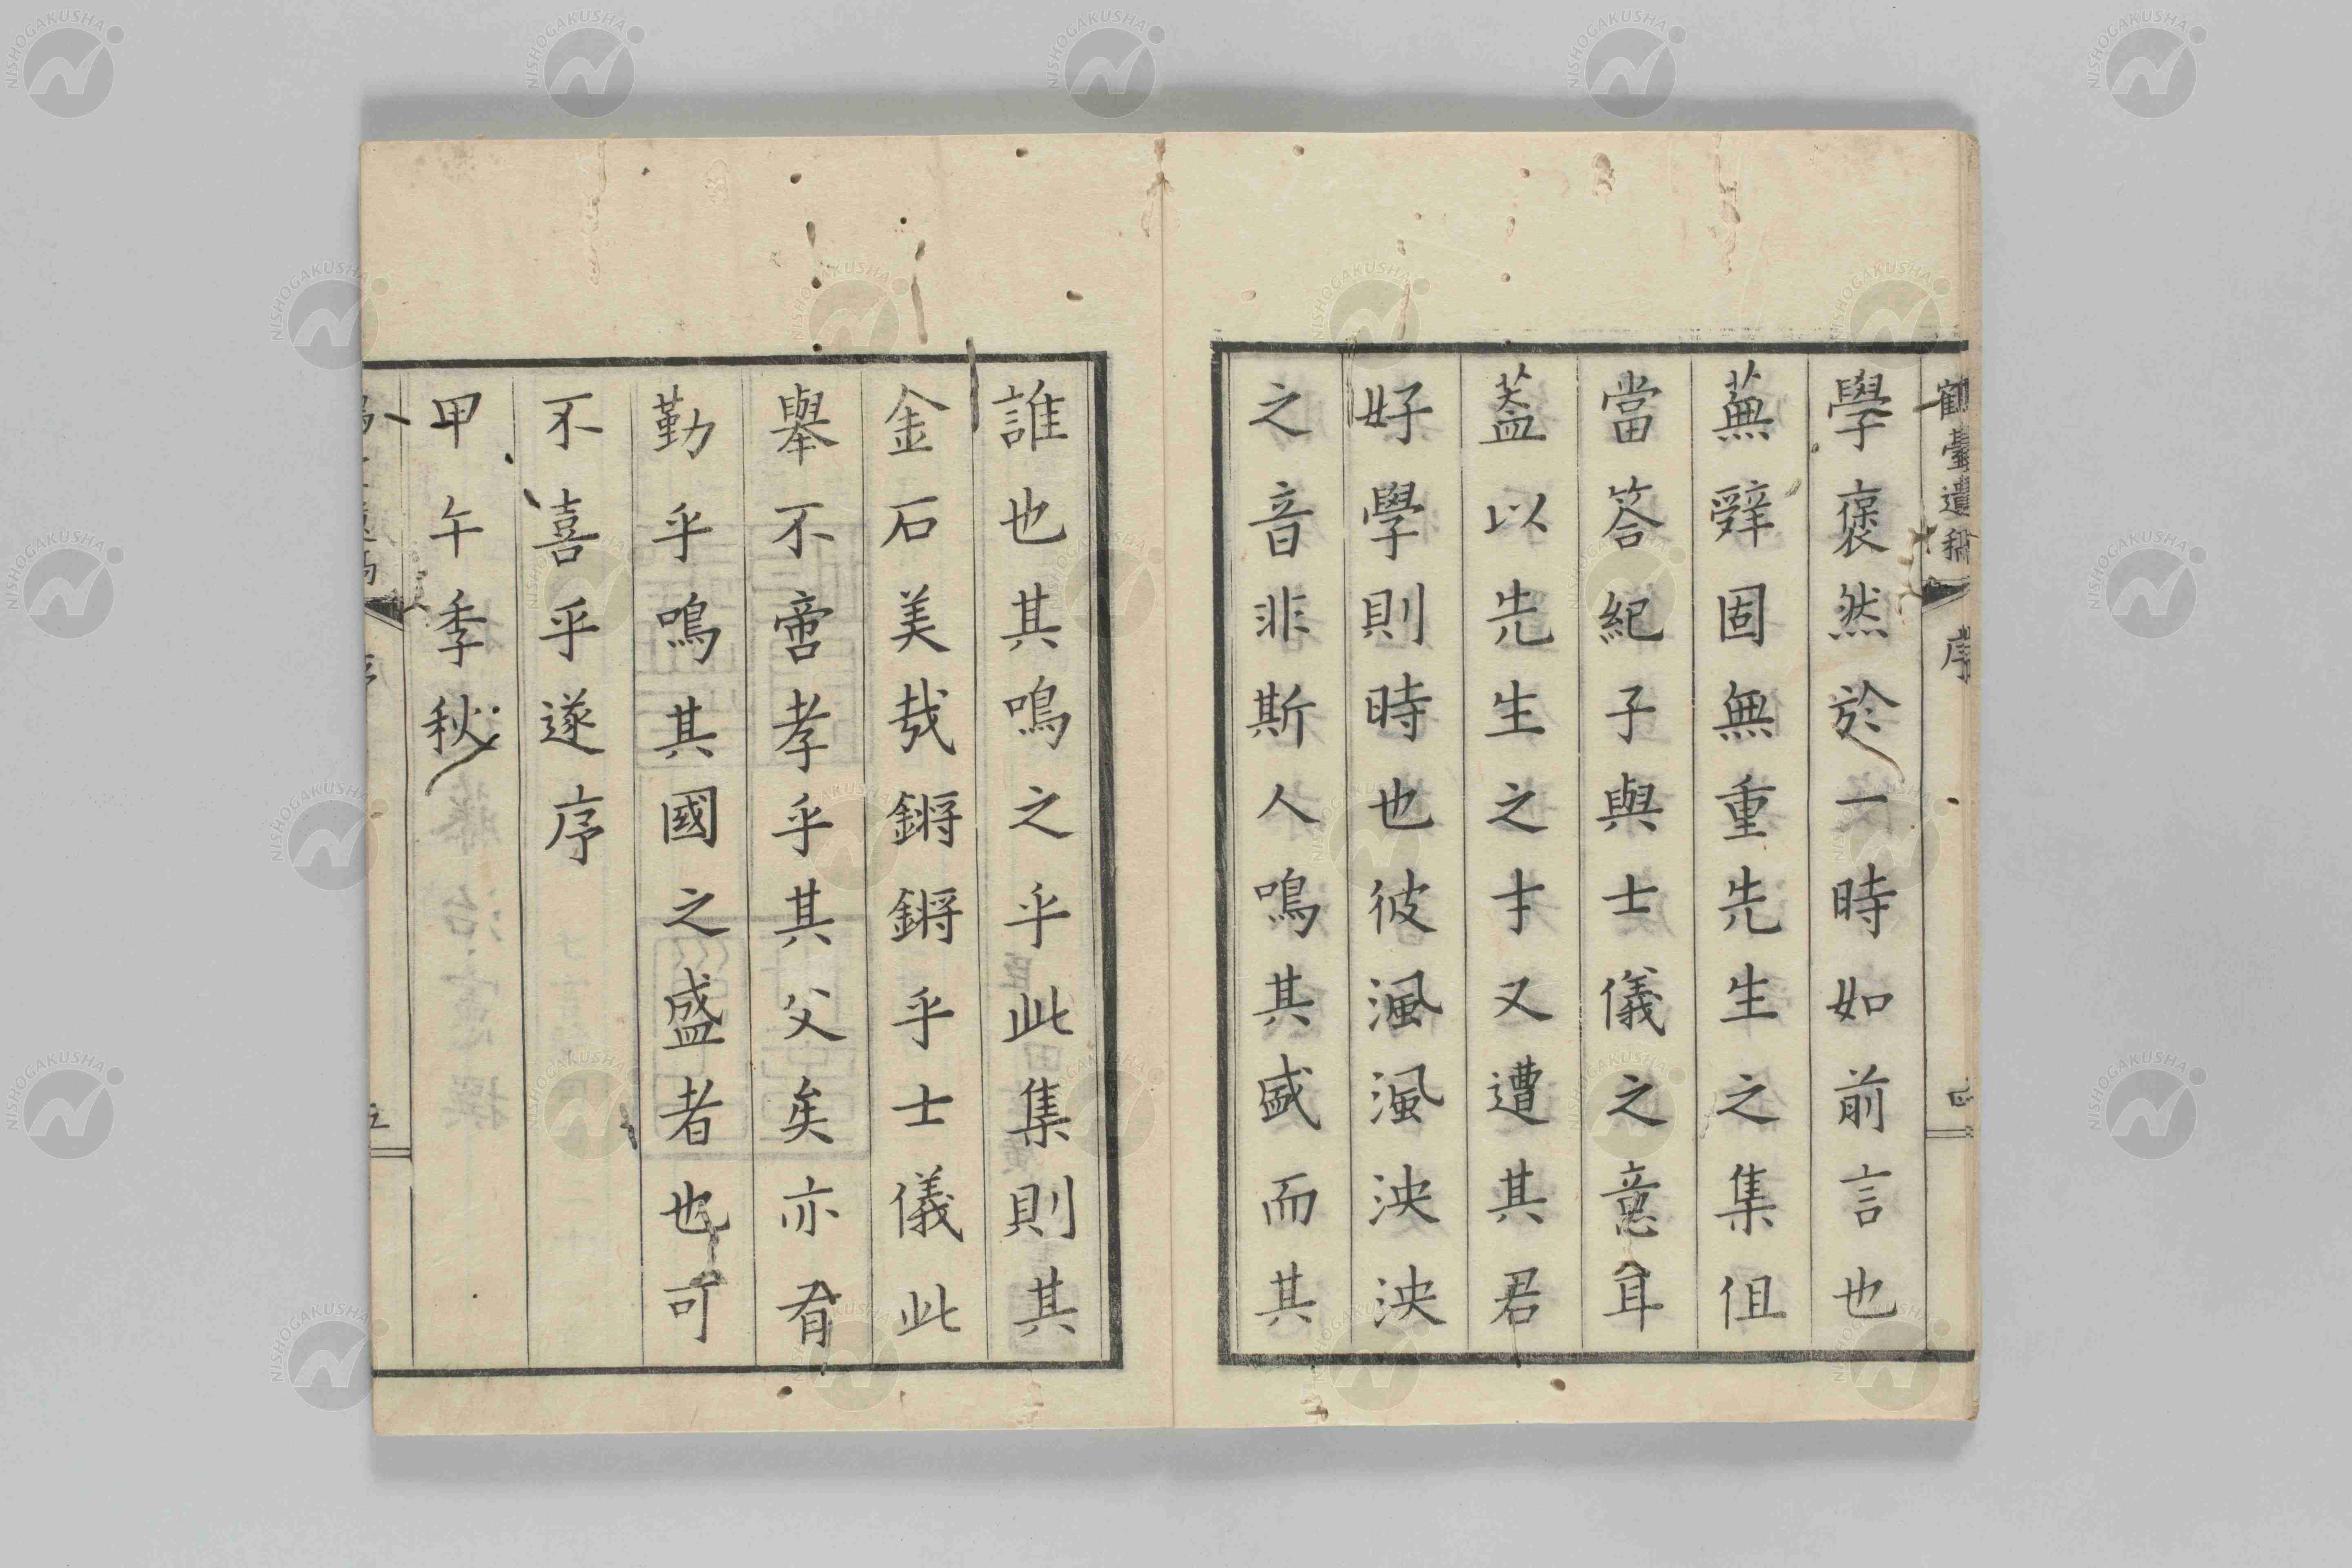 鶴臺遺稿 序 四
學褒然於一時如前言也
蕪辭固無重先生之集但
當答紀子與士儀之意耳
葢以先生之才又遭其君
好學則時也彼渢渢泱泱
之音非斯人鳴其盛而其
誰也其鳴之乎此集則其
金石美哉鏘鏘乎士儀此
舉不啻孝乎其父矣亦有
勤乎鳴其國之盛者也可
不喜乎遂序
甲午季秋
五
NISHOGAKUSHA